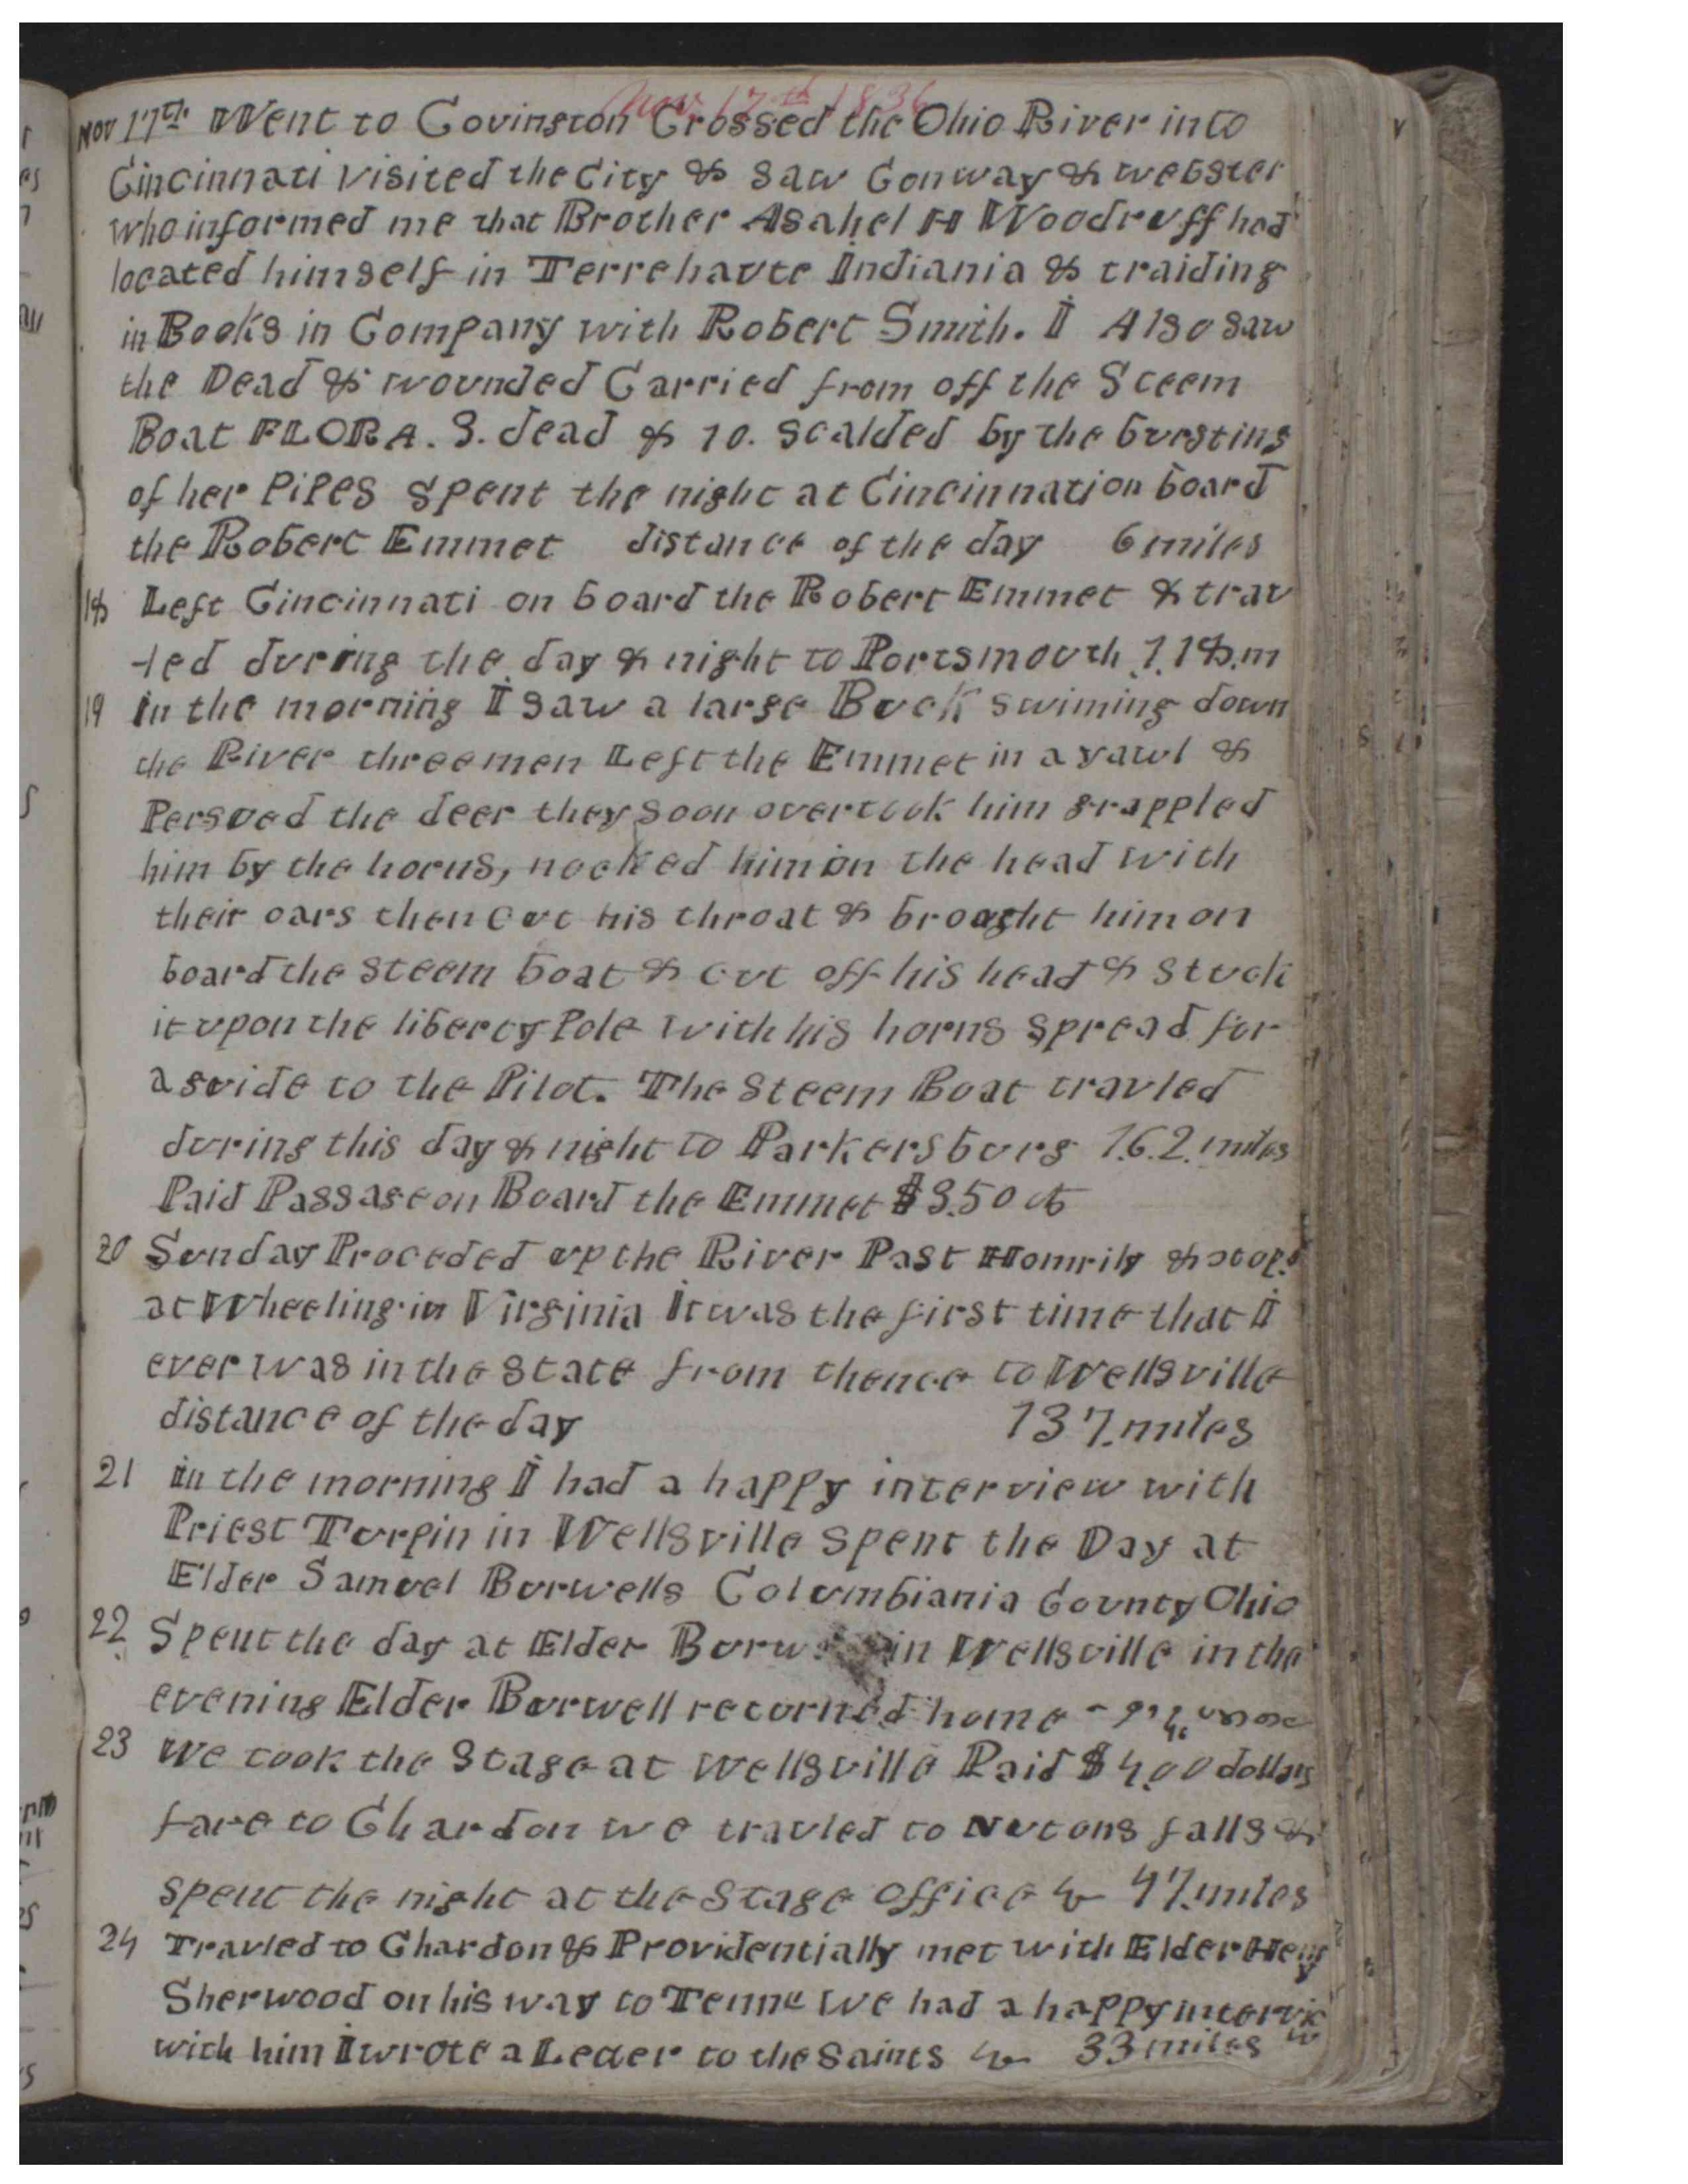 Nov 17th 1836
Nov 17th Went to Covington Crossed the Ohio River into
Cincinnati visited the City & Saw Conway & Webster
who informed me that Brother Asahel H Woodruff had
located himself in Terrehaute Indiania & traiding
in Books in Company with Robert Smith. I Also saw
the Dead & wounded Carried from off the Steem
Boat FLORA. 3. dead & 10. Scalded by the bursting
of her Pipes Spent the night at Cincinnati on board
the Robert Emmet distance of the day 6 miles
18 Left Cincinnati on board the Robert Emmet & trav
-led during the day & night to Portsmouth 118.m
19 in the morning I saw a large Buck swiming down
the River three men Left the Emmet in a yawl &
Persued the deer they soon overtook him grappled
him by the horns, nocked him on the head with
their oars then cut his throat & brought him on
board the Steem boat & cut off his head & stuck
it upon the liberty Pole with his horns spread for
a guide to the Pilot. The Steem Boat travled
during this day & night to Parkersburg 162. miles
Paid Passage on Board the Emmet $3.50 cts
20 Sunday Proceded up the River Past & stopt
at Wheeling in Virginia It was the first time that I
ever was in the State from thence to Wellsville
distance of the day 137. miles
21 in the morning I had a happy interview with
Priest Turpin in Wellsville Spent the Day at
Elder Samuel Burwells Columbiania County Ohio
22 Spent the day at Elder in Wellsville in the
evening Elder Burwell returned home
23 We took the Stage at Wellsville Paid $4,00 dollars
fare to Chardon we travled to Nutons falls &
spent the night at the Stage office 47. miles
24 Travled to Chardon & Providentially met with Elder Heny
Sherwood on his way to Tenne We had a happy interview
with him I wrote a Letter to the Saints 33 miles